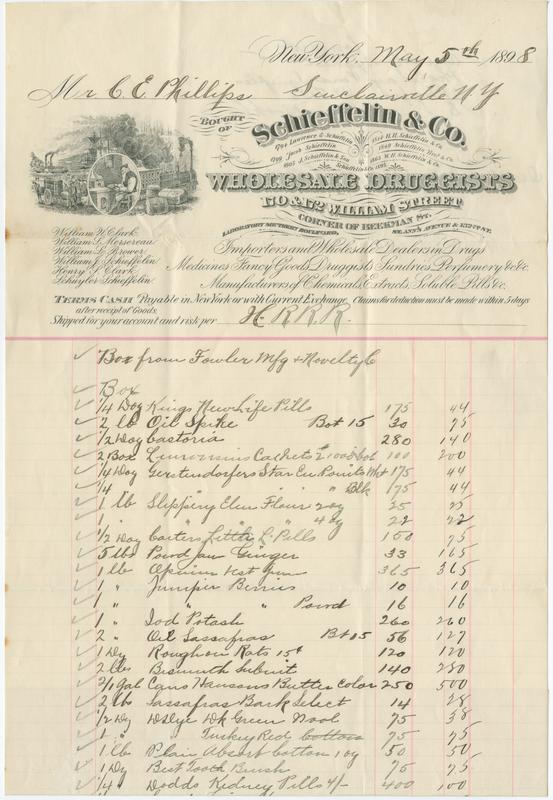 New York, May 5th 1898
Mr C E Phillips Sinclairville N Y
BOUGHT OF
Schieffelin & Co.
1794 Lawrence & Schieffelin
1799 Jacob Schieffelin
1805 J. Schieffelin & Son
1814 H.H. Schieffelin & Co.
1849 Schieffelin Bros & Co.
1865 W.H. Schieffelin & Co.
Schieffelin & Co.
WHOLESALE DRUGGISTS
170 & 172 WILLIAM STREET
CORNER OF BEEKMAN ST.
LABORATORY SOUTHERN BOULEVARD,
William N. Clark
William S. Mersereau
William L. Brower
William J. Schieffelin
Henry S. Clark
Schuyler Schieffelin
Importers and Wholesale Dealers in Drugs
Medicines Fancy Goods, Druggists Sundries, Perfumery &c &c.
Manufacturers of Chemicals, Extracts, Soluble Pills &c.
TERMS CASH Payable in New York or with Current Exchange. Claims for deduction must be made within 5 days
after receipt of Goods.
Shipped for your account and risk per H. R. R. R.
Box from Fowler Mfg & Novelty Co
Box
1/4 Doz Kings New Life Pills 175 44
2 lb Oil Spike Bot 15 30 75
1/2 Doz Castoria 280 140
2 Box Cachets 100 200
1/4 Doz Gerstendorfers Star En Points Wht 175 44
1/4 " " " " Blk 175 44
1 lb Slippery Elm Flour 2 oz 25 25
1 " " " " 4 oz 22 22
1/2 Doz Carters Little L. Pills 150 75
5 lbs Powd Jam Ginger 33 165
1 lb Opium test Gum 365 365
1 " Juniper Berries 10 10
1 " " " Powd 16 16
1 " Iod Potash 260 260
2 " Oil Sassafras Bot 15 56 127
1 Dz Rough on Rats 15¢ 120 120
2 lbs Bismuth Subnit 140 280
2/1 Gal Cans Hansons Butter Color 250 500
2 lb Sassafras Bark Select 14 28
1/2 Dz Dye Dk Green Wool 75 38
1 " " Turkey Red Cotton 75 75
1 lb Plain Absorb Cotton 1 oz 50 50
1 Dz Best Tooth Brush 75 75
1/4 " Dodds Kidney Pills 4/- 400 100